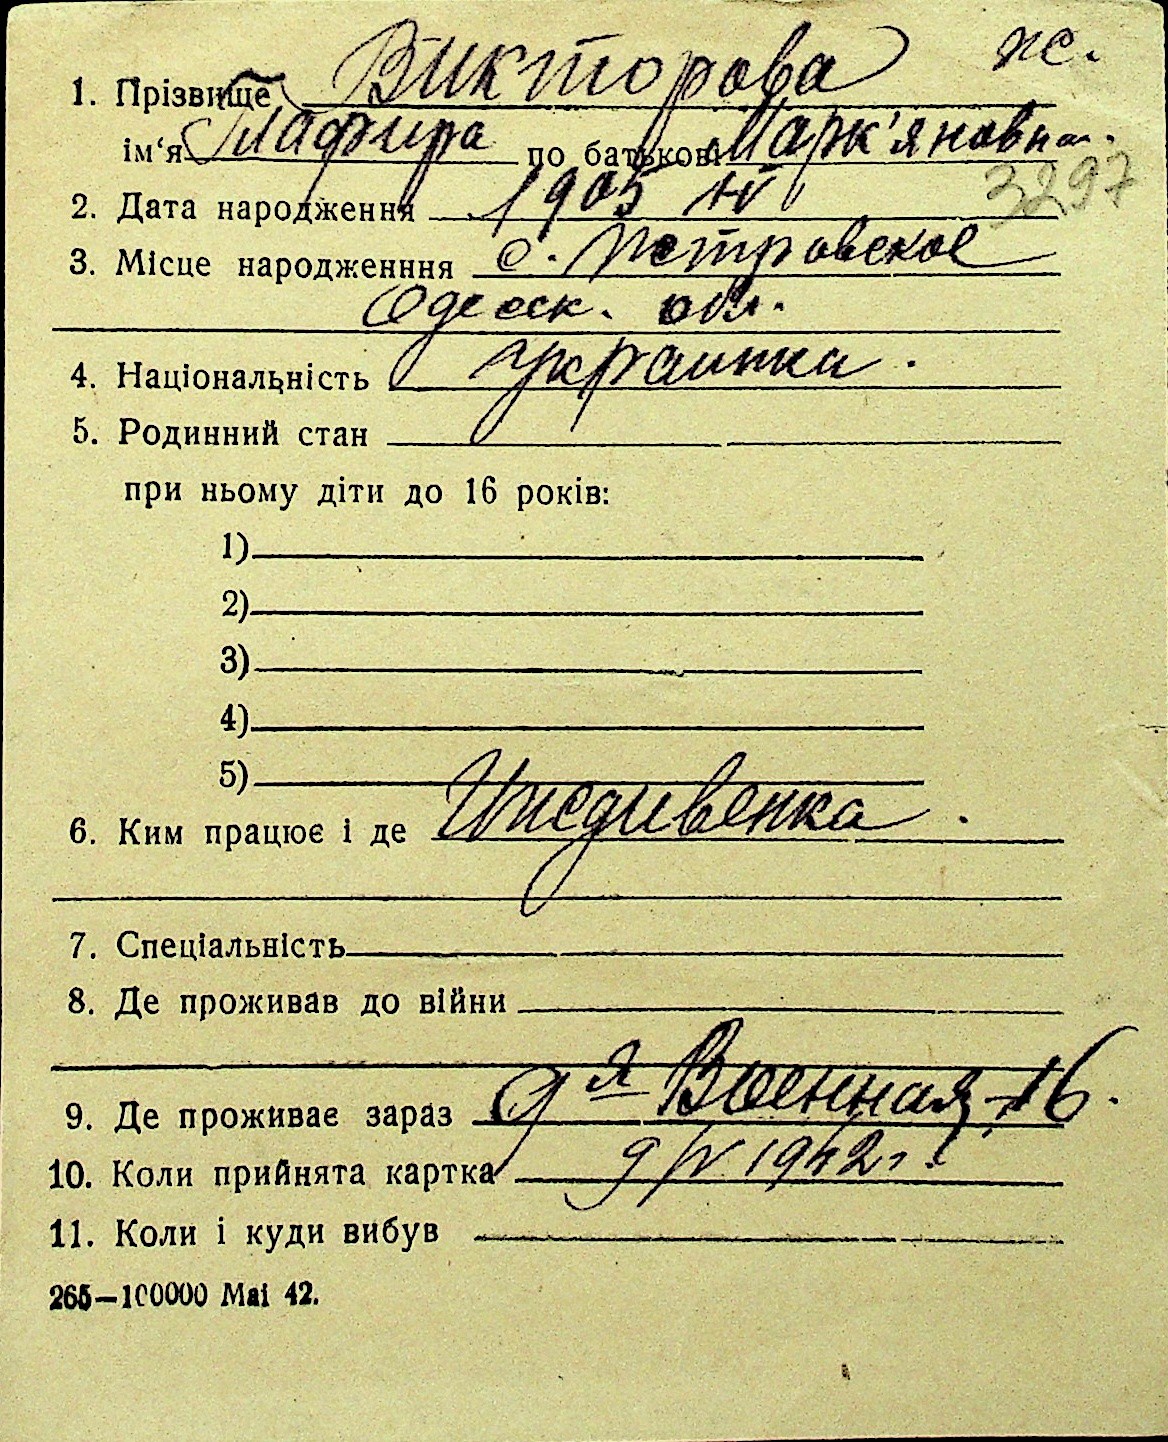 1. Прізвище Викторова ж.
ім‘я Глафира по батькові Марк'яновна.
2. Дата народження 1905 IV 3297
3. Місце народженння с. Петровское
Одесск. обл.
4. Національність украинка.
5. Родинний стан
при ньому діти до 16 років:
1)
2)
3)
4)
5)
6. Ким працює і де Иждивенка.
7. Спеціальність
8. Де проживав до війни
9. Де проживає зараз я Военная 16.
10. Коли прийнята картка 9/IV 1942 г.
11. Коли і куди вибув
265—100000 Mai 42.